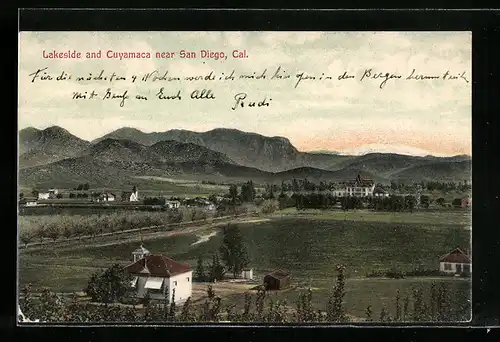 Lakeside and Cuyamaca near San Diego, Cal.
Für die nächsten 4 Wochen werde ich mich hier in den Bergen
Mit Gruß an Euch Alle Rudi